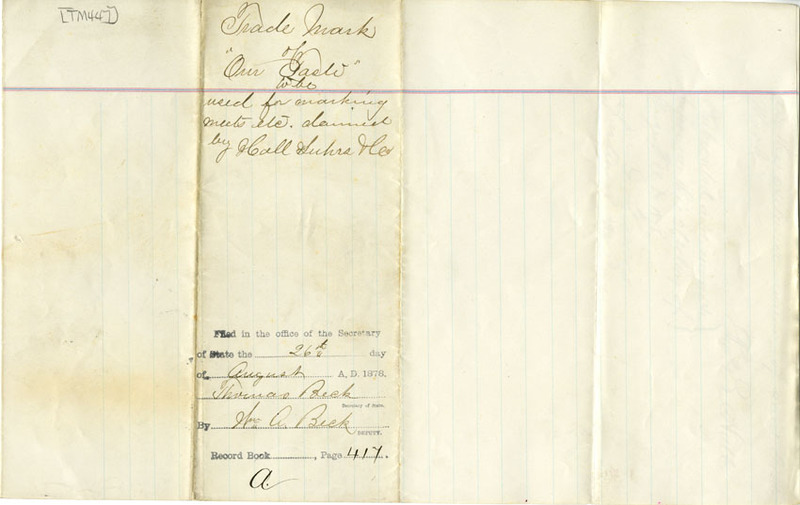 [TM447]
Trade Mark
of
"Our Taste"
to be
used for marking
meets etc. claimed
by Hall Luhrs & Co
Filed in the office of the Secretary
of State the 26th day
of August A. D. 1878.
Thomas Beck
Secretary of State.
By Wm A. Beck
DEPUTY.
Record Book , Page 417.
A.